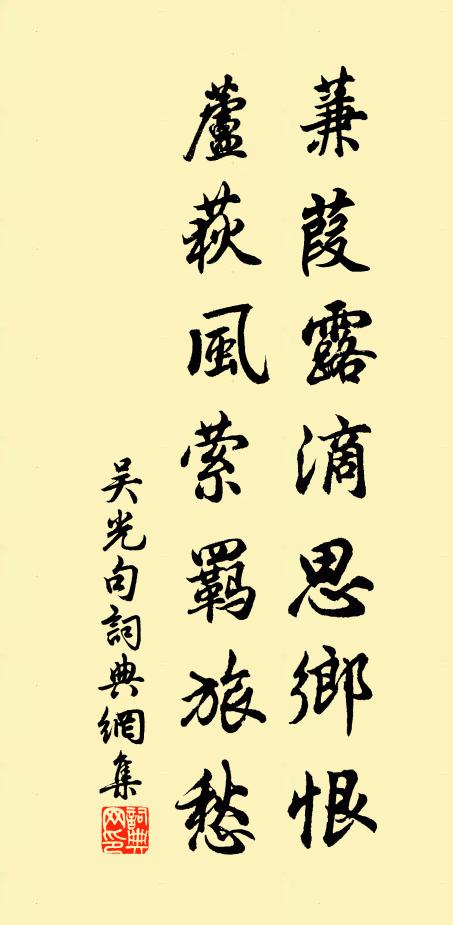 蒹葭露滴思鄉恨
蘆荻風縈羈旅愁
吴光句詞典網集
詞典網印